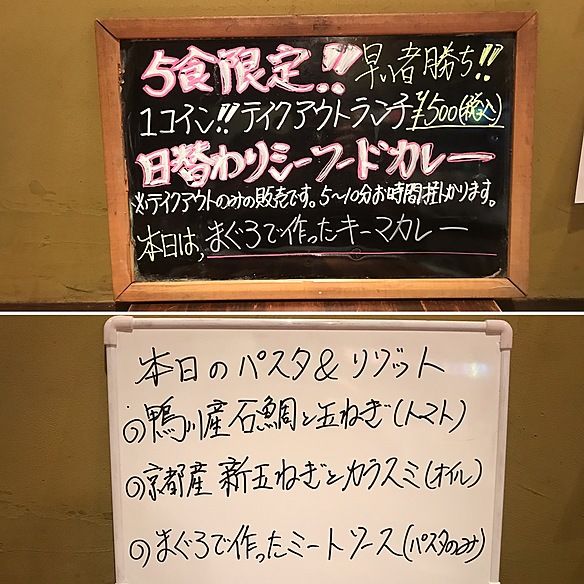 5食限定!! 早い者勝ち!!
1コイン!! テイクアウトランチ ¥500(税込)
日替わりシーフードカレー
※テイクアウトのみの販売です。5〜10分お時間掛かります。
本日は、まぐろで作ったキーマカレー
本日のパスタ&リゾット
の鴨川産石鯛と玉ねぎ(トマト)
の京都産 新玉ねぎとカラスミ(オイル)
のまぐろで作ったミートソース(パスタのみ)